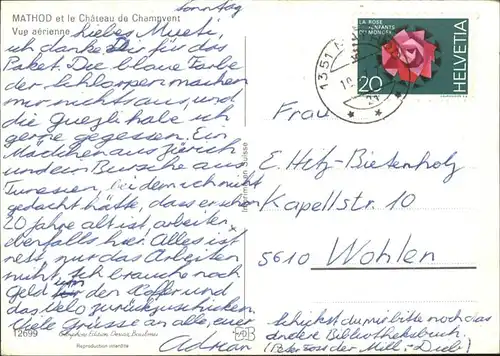 MATHOD et le Château de Champvent
Vue aérienne
Sonntag
Liebes Mueti,
ich danke Dir für das
Paket. Die blaue Farbe
der Schlorpen machen
mir nichts aus, und
die Guezli habe ich
gerne gegessen. Ein
Mädchen aus Zürich
und ein Bursche aus
Tunesien, bei dem ich nicht
gedacht hätte, dass er schon
20 Jahre alt ist, arbeiten
ebenfalls hier. Alles ist
nett, nur das Arbeiten
nicht. Ich brauche noch
Geld um den Koffer und
das Velo zurückzuschicken.
Viele Grüsse an alle, euer
Adrian
12699
Reproduction interdite
Imprimé en Suisse
1351
LA ROSE
ENFANTS
DU MONDE
20
HELVETIA
Frau
E. Hitz-Bietenholz
Kapellstr. 10
5610 Wohlen
Schickst du mir bitte noch das
andere Bibliotheksbuch.